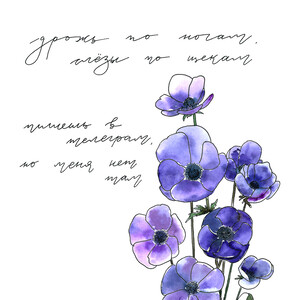 дрожь по ногам,
слёзы по щекам
пишешь в
телеграм,
но меня нет
там